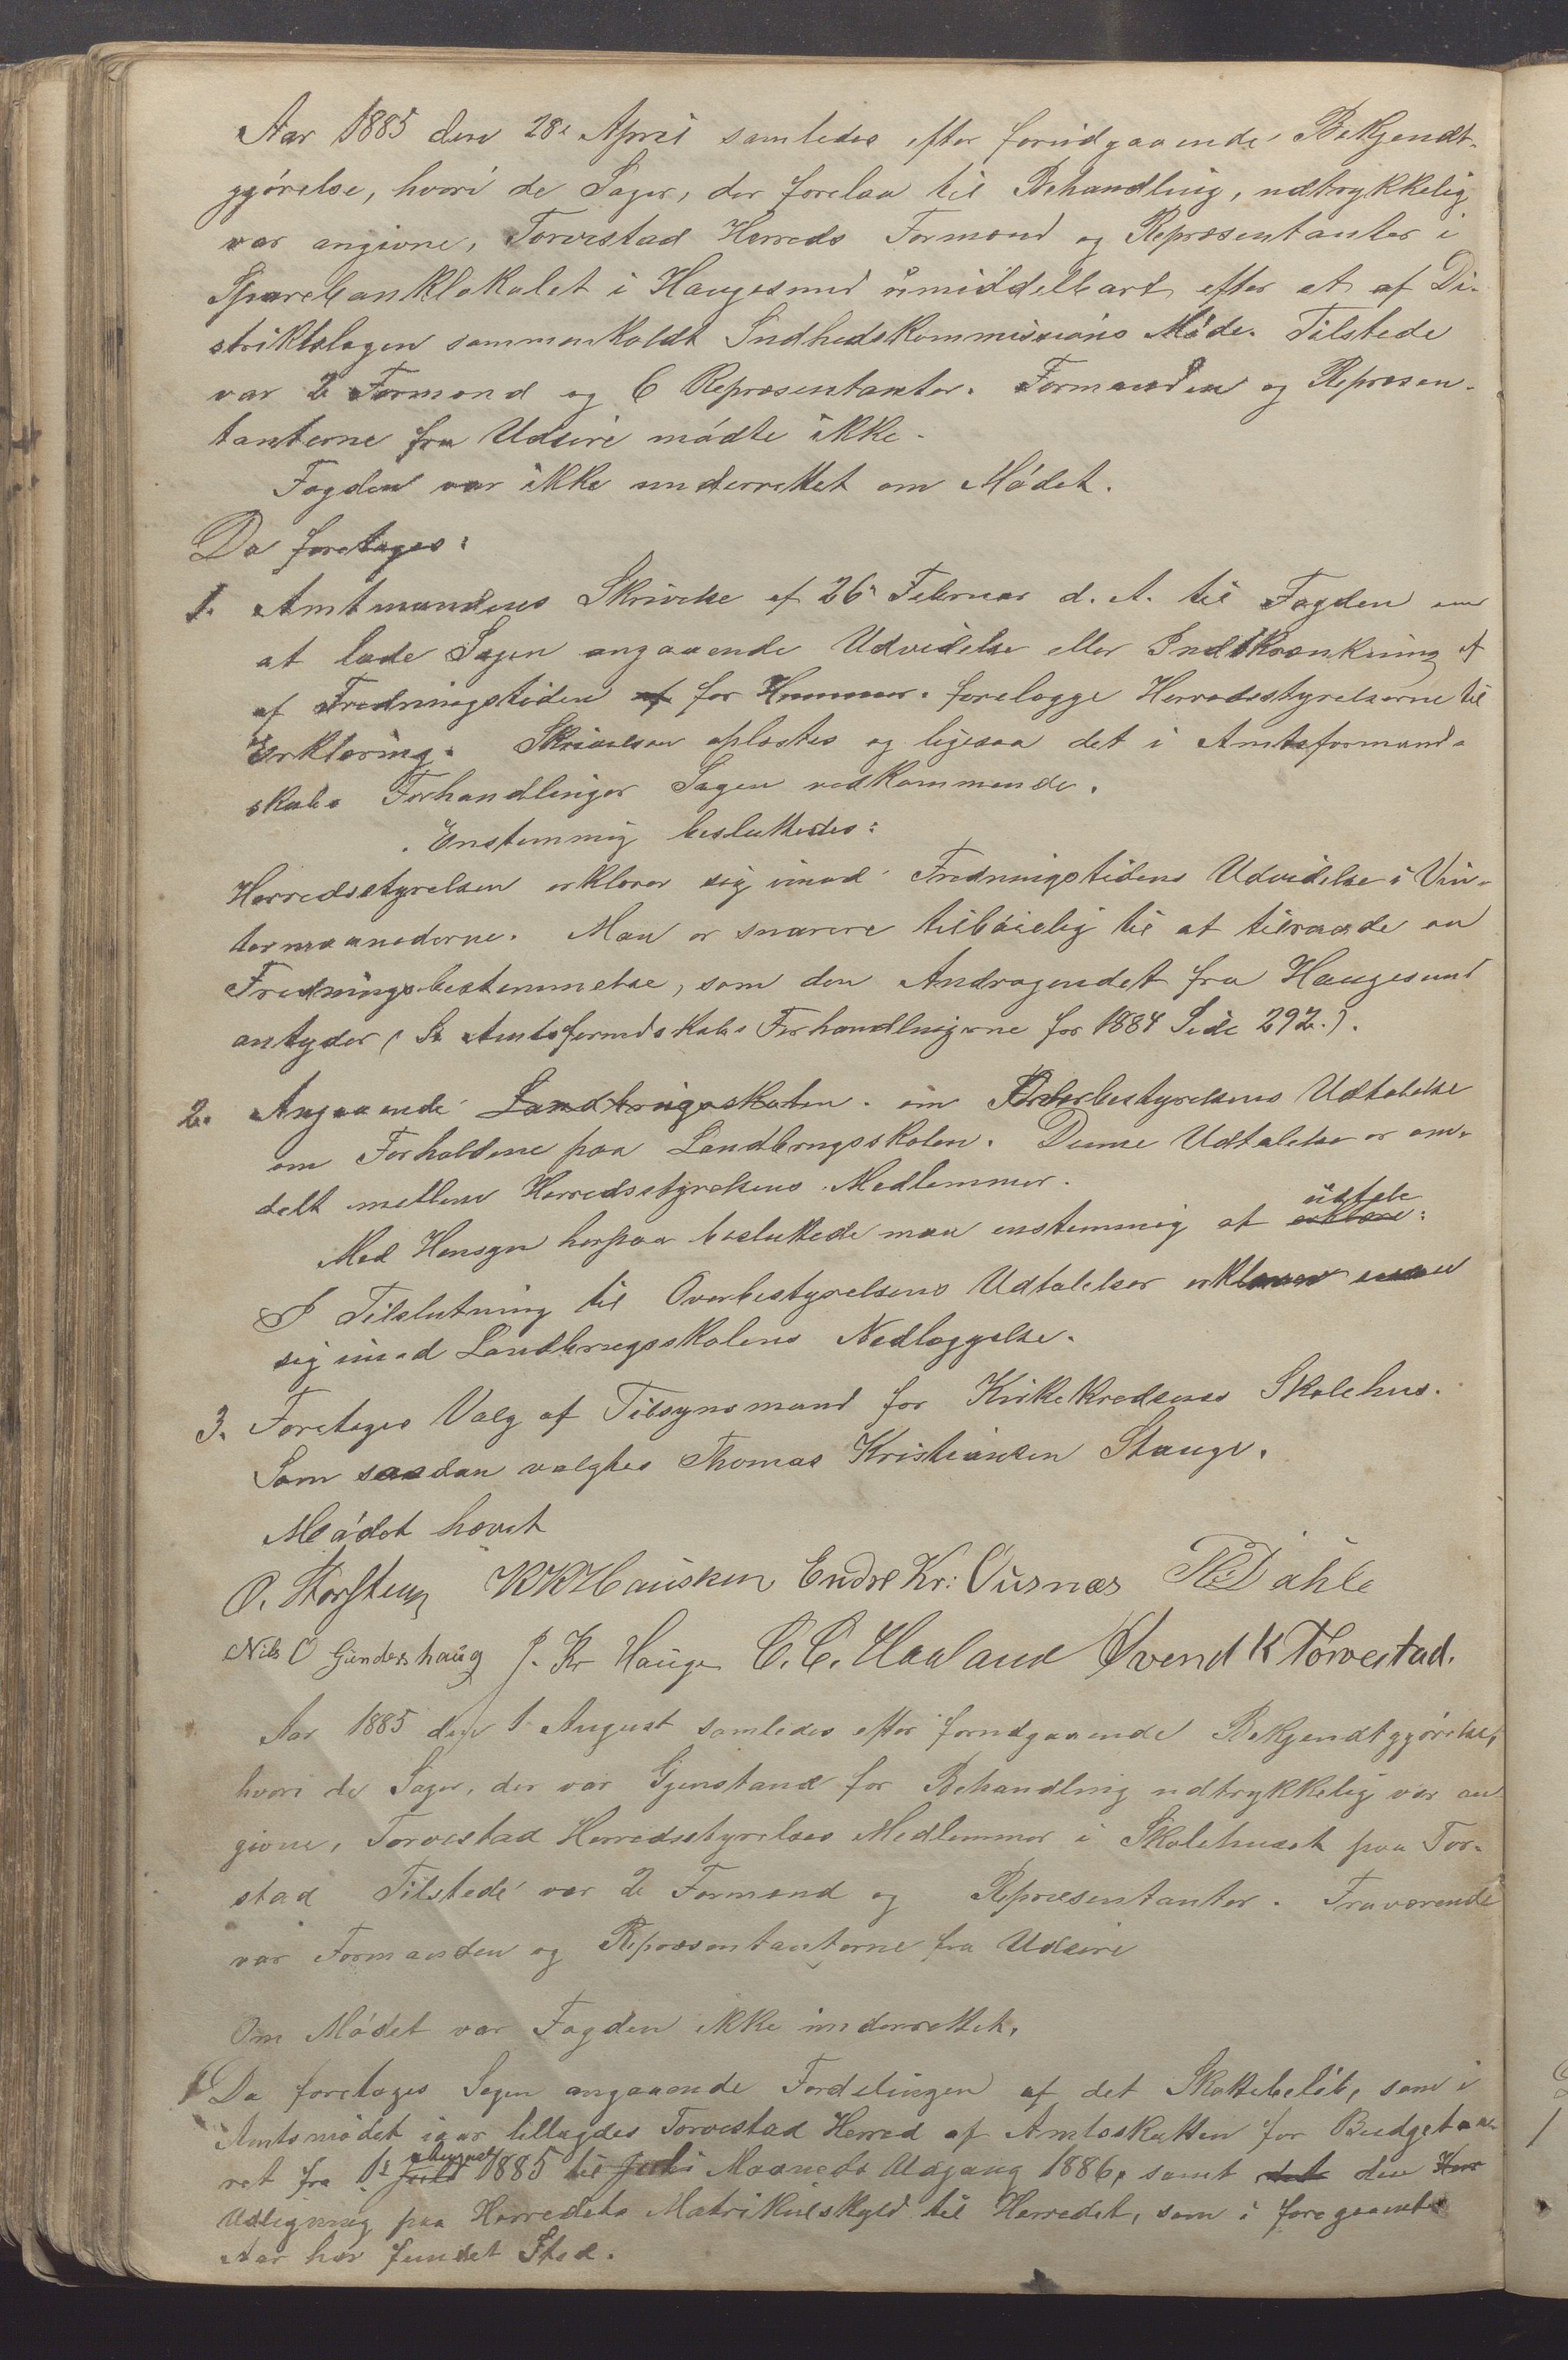 Aar 1885 den 28e April samledes efter forudgaaende Bekjendt-
gjørelse, hvori de Sager, der forelaa til Behandling, udtrykkelig
var angivne, Torvestad Herreds Formænd og Repræsentanter i
Sparebanklokalet i Haugesund umiddelbart efter et af Di-
striktslægen sammenkaldt Sundhedskommissions Møde. Tilstede
var 2 Formænd og 6 Repræsentanter. Formanden og Repræsen-
tanterne fra Udsire mødte ikke.
Fogden var ikke underrettet om Mødet.
Da foretages:
1. Amtmandens Skrivelse af 26e Februar d. A. til Fogden om
at lade Sagen angaaende Udvidelse eller Indskrænkning
af Fredningstiden af for Hummer forelægge Herredsstyrelserne til
Erklæring. Skrivelsen oplæstes og ligesaa det i Amtsformand-
skabs Forhandlinger Sagen vedkommende.
Enstemmig besluttedes:
Herredsstyrelsen erklærer sig imod Fredningstidens Udvidelse i Vin-
termaanederne. Man er snarere tilbøielig til at tilraade en
Fredningsbestemmelse, som den Andragendet fra Haugesund
antyder (Se Amtsformdskabs Forhandlingerne for 1884 Side 292.).
2. Angaaende Landbrugsskolen. om Overbestyrelsens Udtalelse
om Forholdene paa Landbrugsskolen. Denne Udtalelse er om-
delt mellem Herredsstyrelsens Medlemmer.
Med Hensyn herpaa besluttede man enstemmig at erklære: udtale
I Tilslutning til Overbestyrelsens Udtalelser erklærer man
sig imod Landbrugsskolens Nedlæggelse.
3. Foretages Valg af Tilsynsmand for Kirkekredsens Skolehus.
Som saadan valgtes Thomas Kristiansen Stange.
Mødet hævet
O. Storsteen KKHausken Endre Kr: Osnæs Dahle
Nils O Gundershaug J. Kr Hauge C. C. Haaland Svend K Torvestad.
Aar 1885 den 1 August samledes efter forudgaaende Bekjendtgjørelse,
hvori de Sager, der var Gjenstand for Behandling udtrykkelig var an
givne, Torvestad Herredsstyrelses Medlemmer i Skolehuset paa Tor-
stad Tilstede var 2 Formænd og Repræsentanter. Fraværende
var Formanden og Repræsentanterne fra Udsire
Om Mødet var Fogden ikke underrettet.
1 Da foretages Sagen angaaende Fordelingen af det Skattebeløb, som i
Amtsmødet iaar tillagdes Torvestad Herred af Amtsskatten for Budgetaa-
ret fra 1e Juli 1885 til Juli Maaneds Udgang 1886, samt det den Her
Udligning paa Herredets Matrikulskyld til Herredet, som i foregaaende
Aar har fundet Sted.